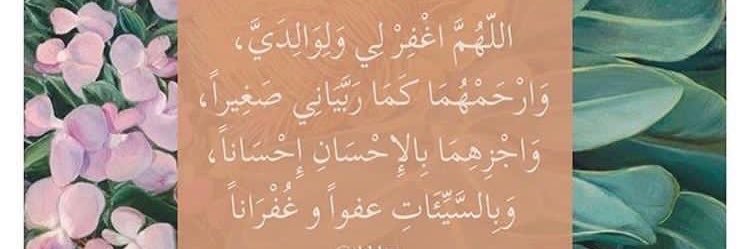 اللّهُمَّ اغْفِرْ لِي وَلِوَالِدَيَّ،
وَارْحَمْهُمَا كَمَا رَبَّيَانِي صَغِيراً،
وَاجْزِهِمَا بِالإِحْسَانِ إِحْسَاناً،
وَبِالسَّيِّئَاتِ عفواً و غُفْرَاناً